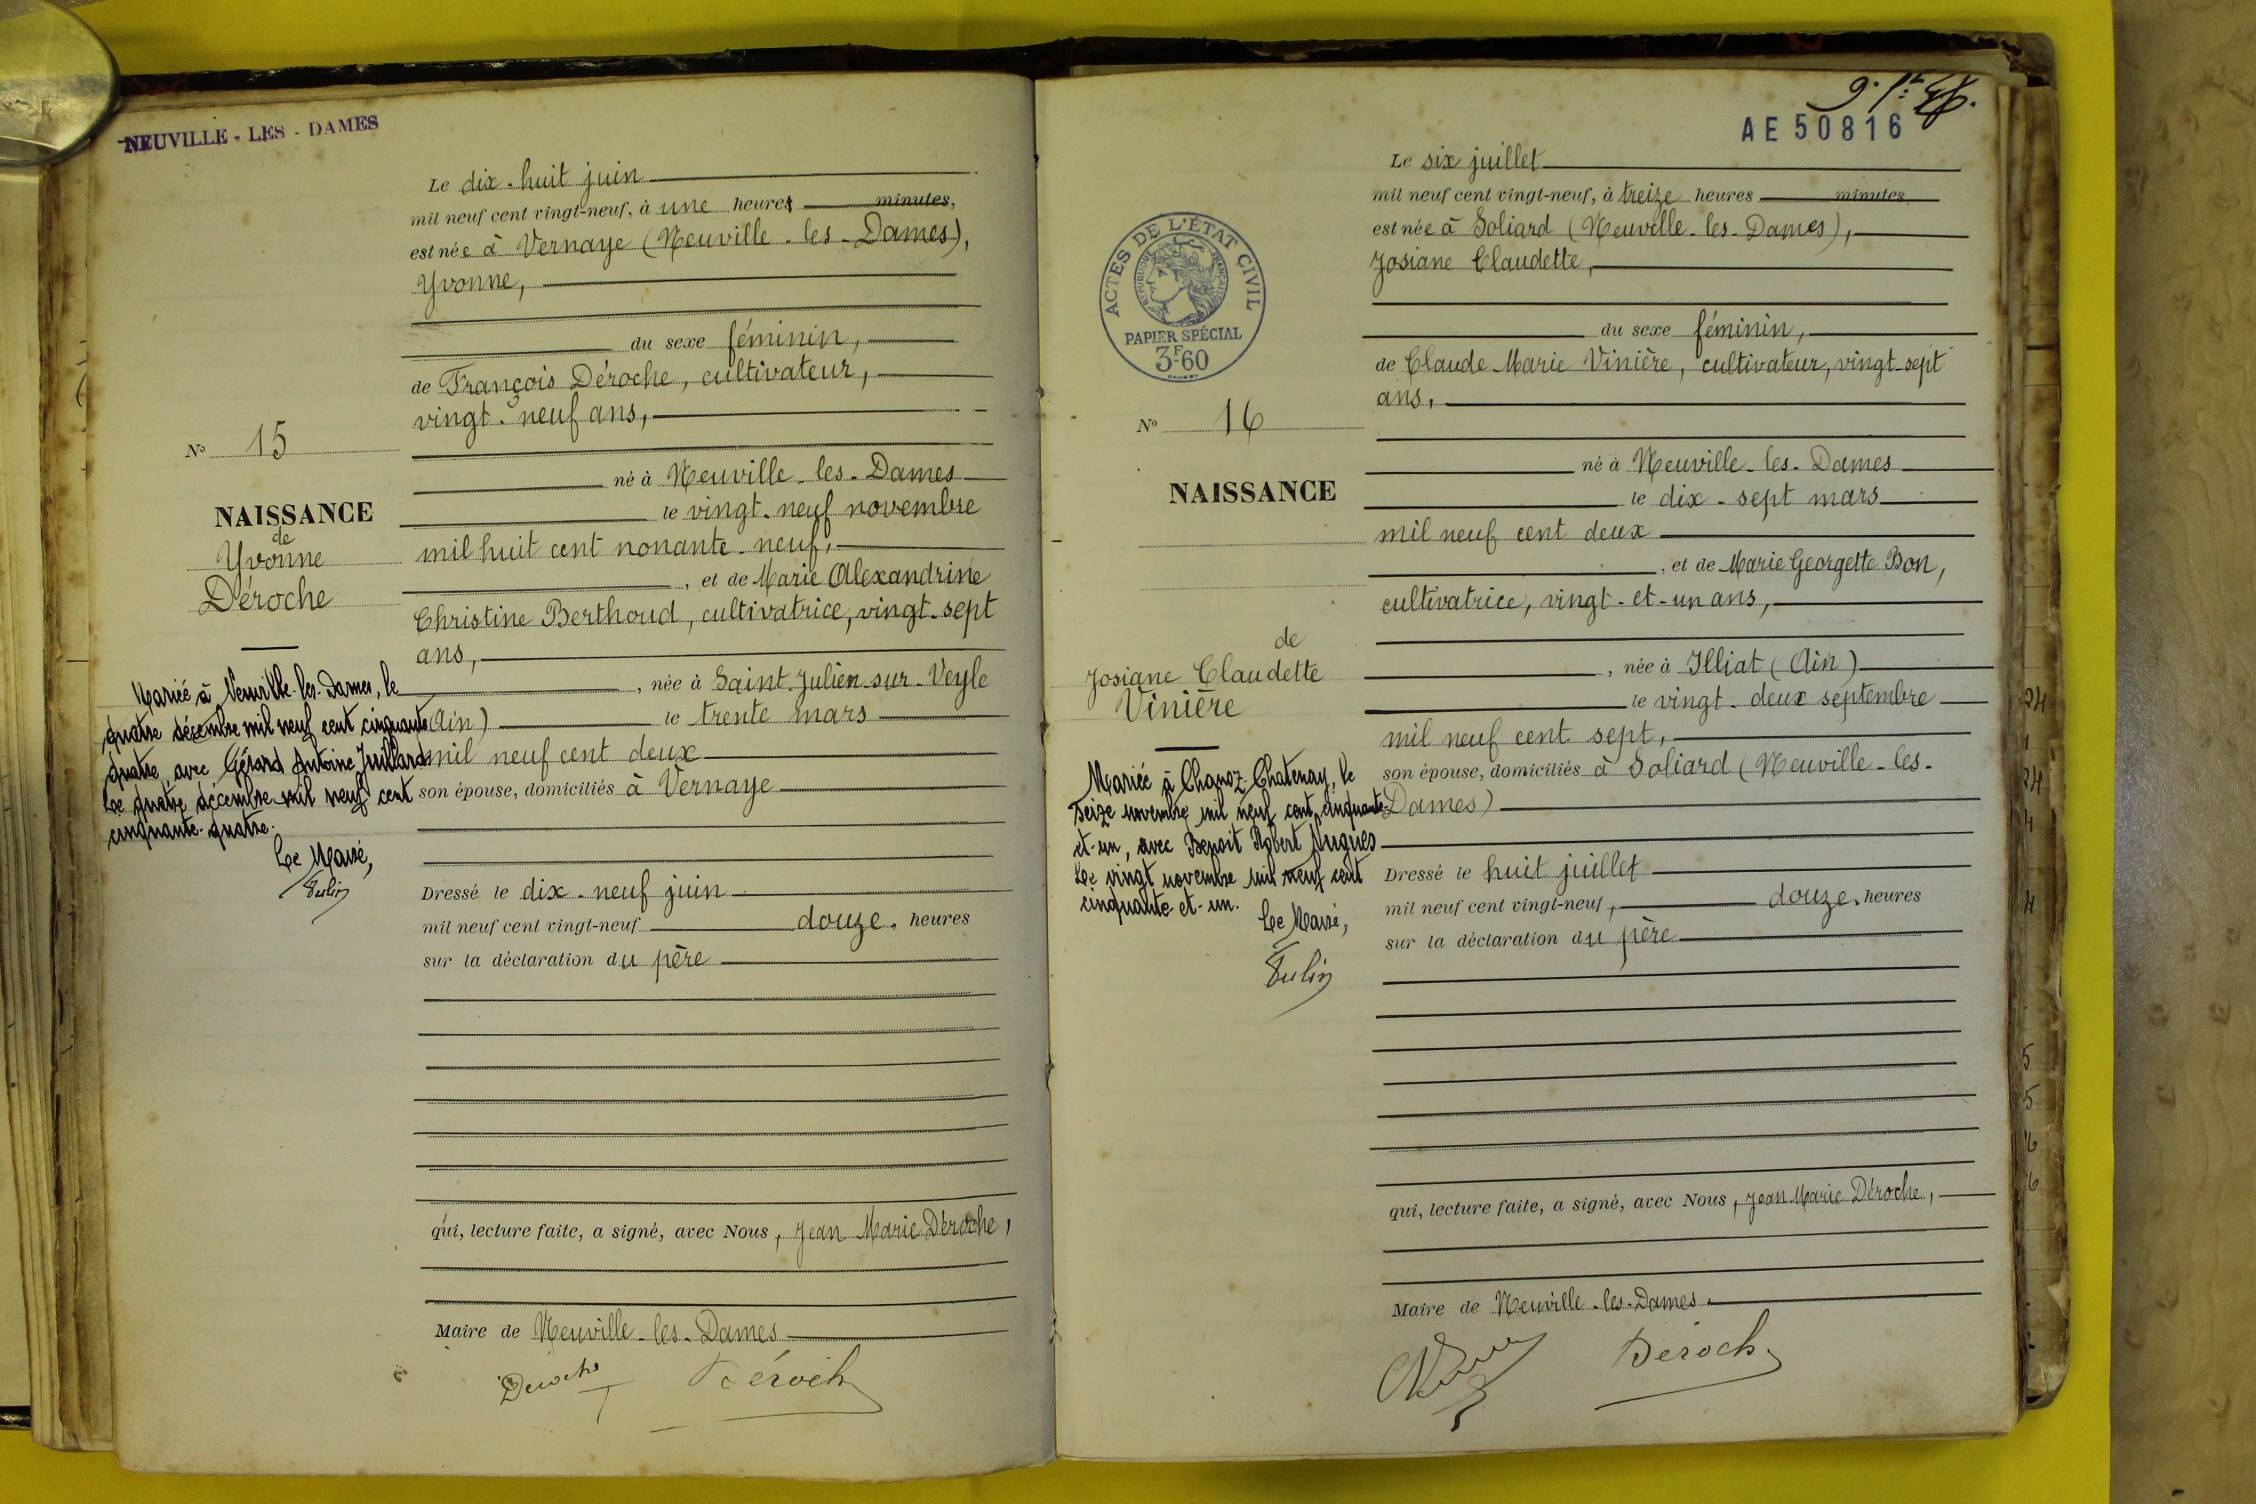 NEUVILLE - LES - DAMES
Le dix-huit juin
mil neuf cent vingt-neuf, à une heures minutes,
est née à Vernaye (Neuville-les-Dames),
Yvonne,
du sexe féminin,
de François Déroche, cultivateur,
vingt-neuf ans,
né à Neuville-les-Dames
le vingt-neuf novembre
mil huit cent nonante-neuf,
, et de Marie Alexandrine
Christine Berthoud, cultivatrice, vingt-sept
ans,
, née à Saint-Julien-sur-Veyle
(Ain) le trente mars
mil neuf cent deux
son épouse, domiciliés à Vernaye
Dressé le dix-neuf juin
mil neuf cent vingt-neuf douze heures
sur la déclaration du père
qui, lecture faite, a signé, avec Nous, Jean Marie Déroche,
Maire de Neuville-les-Dames
Déroche Déroche
No 15
NAISSANCE
de
Yvonne
Déroche
Mariée à Neuville-les-Dames, le
quatre décembre mil neuf cent cinquante
quatre, avec Gérard Antoine Juillard
Le quatre décembre mil neuf cent
cinquante-quatre.
Le Maire,
AE 50816
Le six juillet
mil neuf cent vingt-neuf, à treize heures minutes
est née à Soliard (Neuville-les-Dames),
Josiane Claudette,
du sexe féminin,
de Claude Marie Vinière, cultivateur, vingt-sept
ans,
né à Neuville-les-Dames
le dix-sept mars
mil neuf cent deux
, et de Marie Georgette Bon,
cultivatrice, vingt-et-un ans,
, née à Illiat (Ain)
le vingt-deux septembre
mil neuf cent sept,
son épouse, domiciliés à Soliard (Neuville-les-
Dames)
Dressé le huit juillet
mil neuf cent vingt-neuf, douze heures
sur la déclaration du père
qui, lecture faite, a signé, avec Nous, Jean Marie Déroche,
Maire de Neuville-les-Dames.
Déroche
ACTES DE L'ÉTAT CIVIL
RÉPUBLIQUE FRANÇAISE
PAPIER SPÉCIAL
3F60
No 16
NAISSANCE
de
Josiane Claudette
Vinière
Mariée à Chanoz-Chatenay, le
seize novembre mil neuf cent cinquante-
et-un, avec Benoit Robert Nugues
Le vingt novembre mil neuf cent
cinquante-et-un.
Le Maire,
24
24
4
4
5
5
6
6